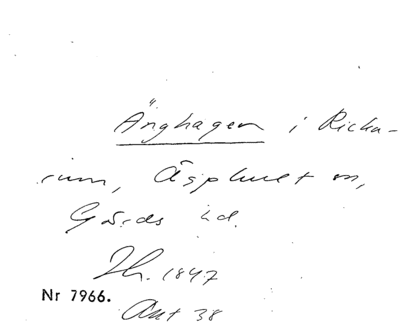 Änghagen i Ricka-
rum, Äsphult sn,
Gärds hd.
Th. 1847
Nr 7966.
Ant 38